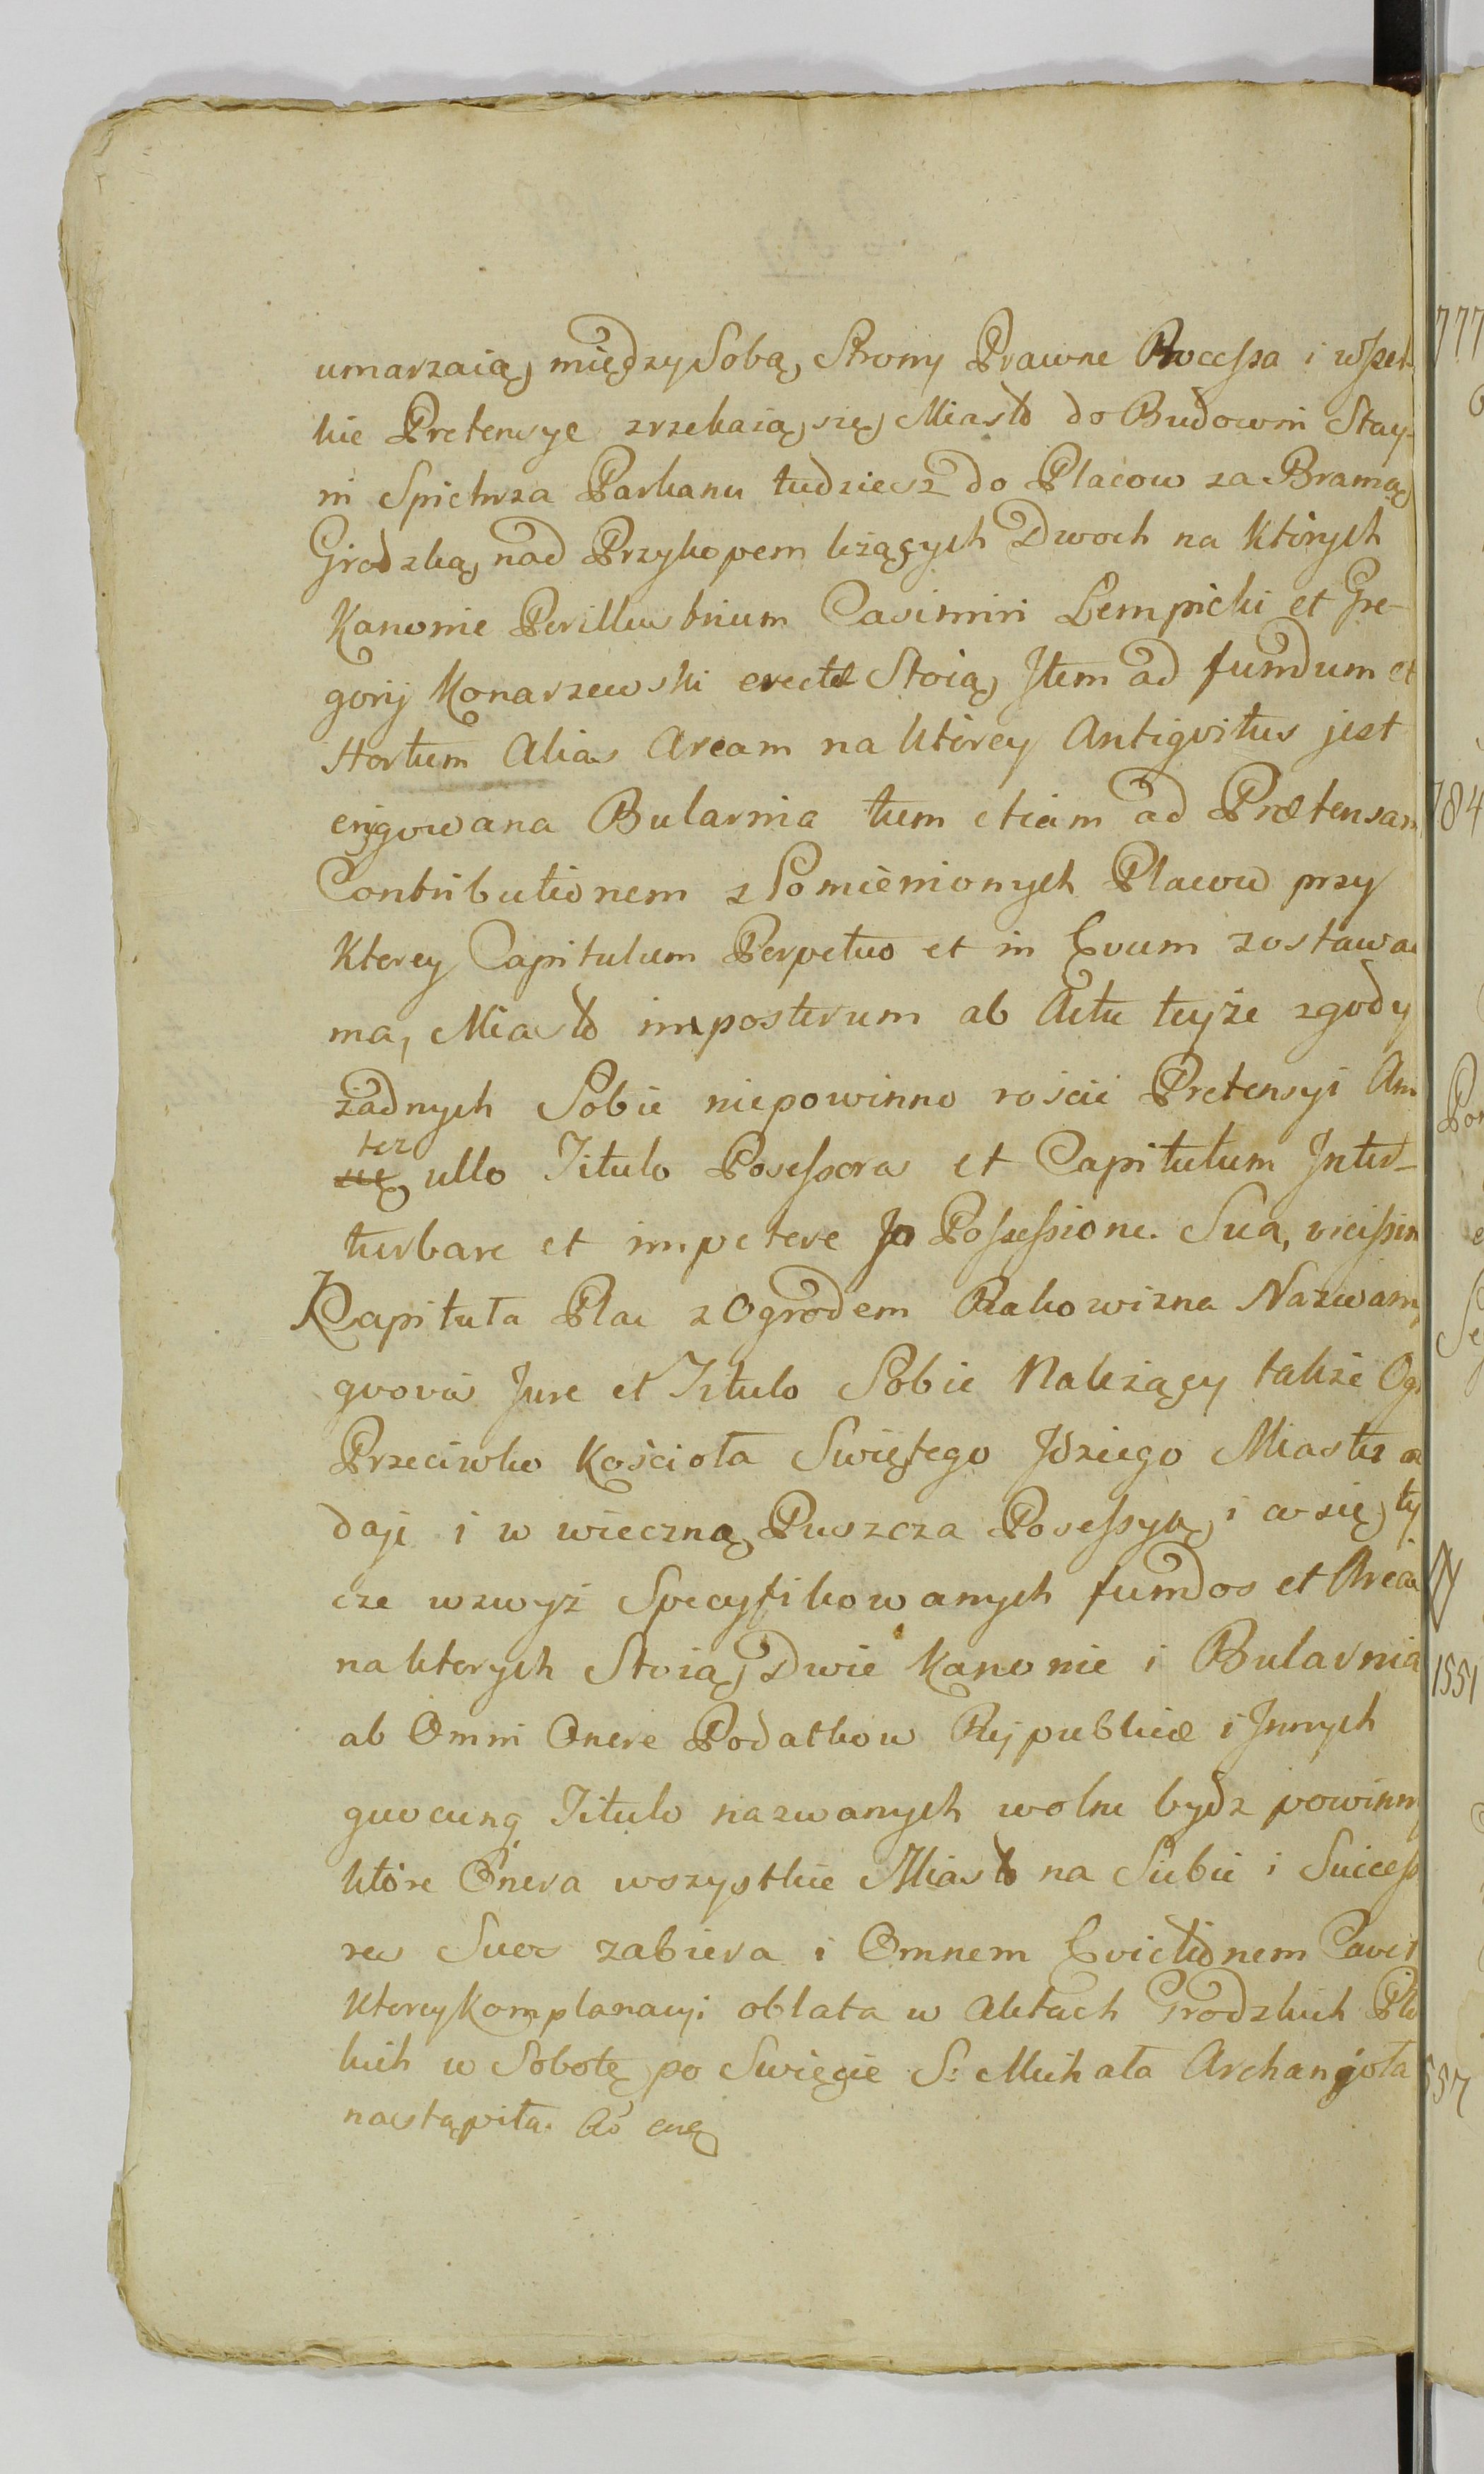 umarzaią między Sobą, Strony Prawne Processa i wszel
kie Pretensye zrzekaią się Miasto do Budowni Stay-
ni Spichrza Parkanu tudziesz do Placow za Bramą
Grodzką nad Przykopem leżących Dwoch na których
Kanonie Perillustrium Casimiri Lempicki et Gre-
gorij Konarzewski erectæ Stoią, Item ad fundum et
Hortum Alias Aream na którey Antiqvitus jest
erygowana Bularnia tum etiam ad Prætensam
Contributionem z Pomienionych Placow przy
Ktorey Capitulum Perpetuo et in Evum zostawac
ma, Miasto imposterum ab Actu teyże zgody
żadnych Sobie niepowinno rościć Pretensyi Ani
też
się ullo Titulo Possessora et Capitulum Inter-
turbare et impetere In Possessione Sua, vicissim
Kapituła Plac z Ogrodem Rakowizna Nazwany
qvovis Jure et Titulo Sobie Należący także Ogr
Przeciwko Kościoła Swiętego Idziego Miastu
daje i w wieczną Puszcza Possessyą, i co się ty
cze wzwyż Specyfikowanych fundos et Areas
na ktorych Stoią Dwie Kanonie i Bularnia
ab Omni Onere Podatkow Reipublicæ i Innych
quocunq Titulo nazwanych wolne bydz powinny
które Onera wszystkie Miasto na Siebie i Success
res Suos zabiera i Omnem Evictionem Cavet
Ktorey Komplanacyi oblata w Aktach Grodzkich Plo
kich w Sobotę po Swięcie S: Michała Archanioła
nastąpiła.
777
784
1551
557